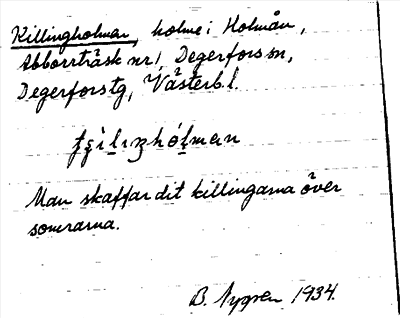 Killingholmen, holme i Holmån,
Abborrträsk nr 1, Degerfors sn,
Degerfors tg, Västerb. l.
Man skaffar dit killingarna över
somrarna.
B. Nygren 1934.